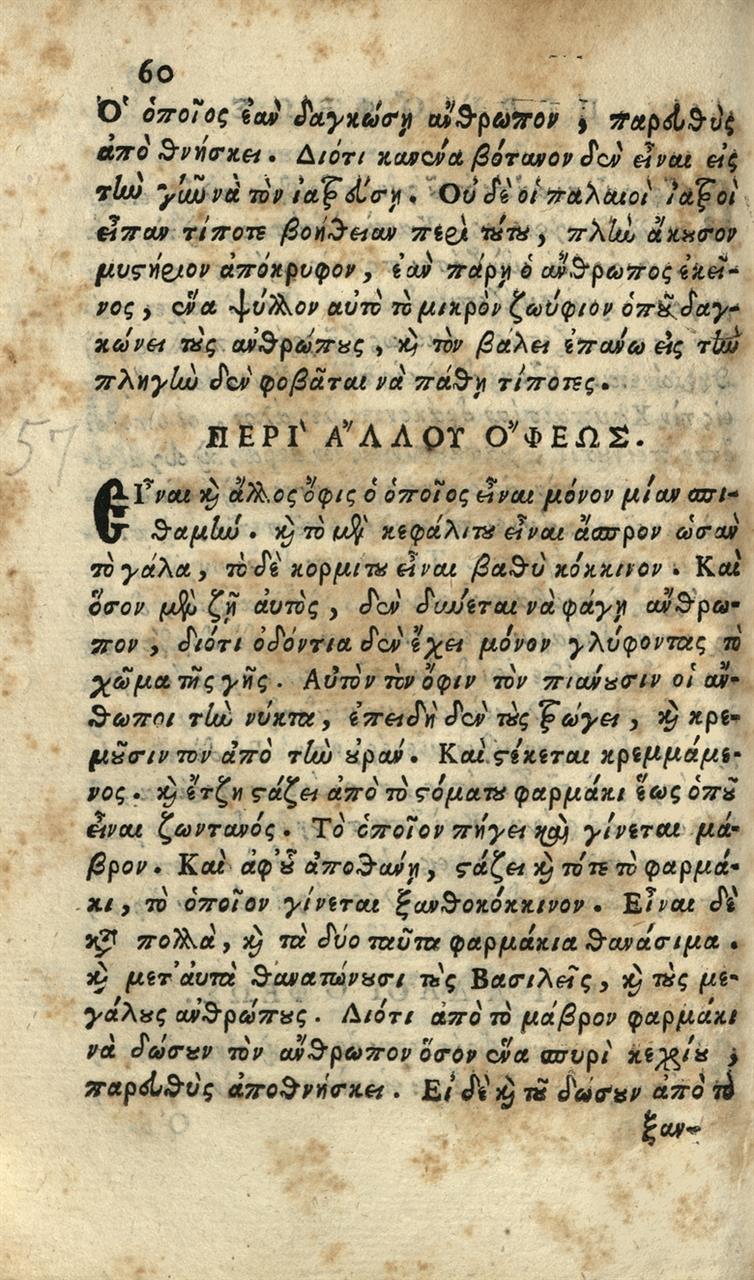 60
Ὁ ὁποῖος ἐὰν δαγκώσῃ ἄνθρωπον, παρευθὺς
ἀποθνήσκει. Διότι κανένα βότανον δὲν εἶναι εἰς
τὴν γῆν νὰ τὸν ἰατρεύσῃ. Οὐδὲ οἱ παλαιοὶ Ἰατροὶ
εἶπαν τίποτε βοήθειαν περὶ τούτου, πλὴν ἄκουσον
μυστήριον ἀπόκρυφον, ἐὰν πάρῃ ὁ ἄνθρωπος ἐκεῖ-
νος, ἕνα ψύλλον αὐτὸ τὸ μικρὸν ζωύφιον ὁποῦ δαγ-
κώνει τοὺς ἀνθρώπους, καὶ τὸν βάλει ἐπάνω εἰς τὴν
πληγὴν δὲν φοβᾶται νὰ πάθῃ τίποτες.
57
ΠΕΡΙ' Α"ΛΛΟΥ Ο"ΦΕΩΣ.
ΕΙ῏ναι καὶ ἄλλος ὄφις ὁ ὁποῖος εἶναι μόνον μίαν σπι-
θαμήν. καὶ τὸ μὲν κεφάλιτου εἶναι ἄσπρον ὡσὰν
τὸ γάλα, τὸ δὲ κορμίτου εἶναι βαθὺ κόκκινον. Καὶ
ὅσον μὲν ζῇ ἀυτὸς, δὲν δύνεται νὰ φάγῃ ἄνθρω-
πον, διότι ὀδόντια δὲν ἔχει μόνον γλύφοντας τὸ
χῶμα τῆς γῆς. Αὐτὸν τὸν ὄφιν τὸν πιάνουσιν οἱ ἄν-
θωποι τὴν νύκτα, ἐπειδὴ δὲν τοὺς τρώγει, καὶ κρε-
μοῦσιν τον ἀπὸ τὴν οὐράν. Καὶ στέκεται κρεμμάμε-
νος. καὶ ἔτζη στάζει ἀπὸ τὸ στόματου φαρμάκι ἕως ὁποῦ
εἶναι ζωντανός. Τὸ ὁποῖον πήγει καὶ γίνεται μά-
βρον. Καὶ ἀφ'οὗ ἀποθάνῃ, στάζει καὶ τότε τὸ φαρμά-
κι, τὸ ὁποῖον γίνεται ξανθοκόκκινον. Εἶναι δὲ
κατὰ πολλὰ, καὶ τὰ δύο ταῦτα φαρμάκια θανάσιμα.
καὶ μετ'ἀυτὰ θανατώνουσι τοὺς Βασιλεῖς, καὶ τοὺς με-
γάλους ἀνθρώπους. Διότι ἀπὸ τὸ μάβρον φαρμάκι
νὰ δώσουν τὸν ἄνθρωπον ὅσον ἕνα σπυρὶ κεχρίου,
παρευθὺς ἀποθνήσκει. Εἰ δὲ καὶ τοῦ δώσουν ἀπὸ τὸ
ξαν-